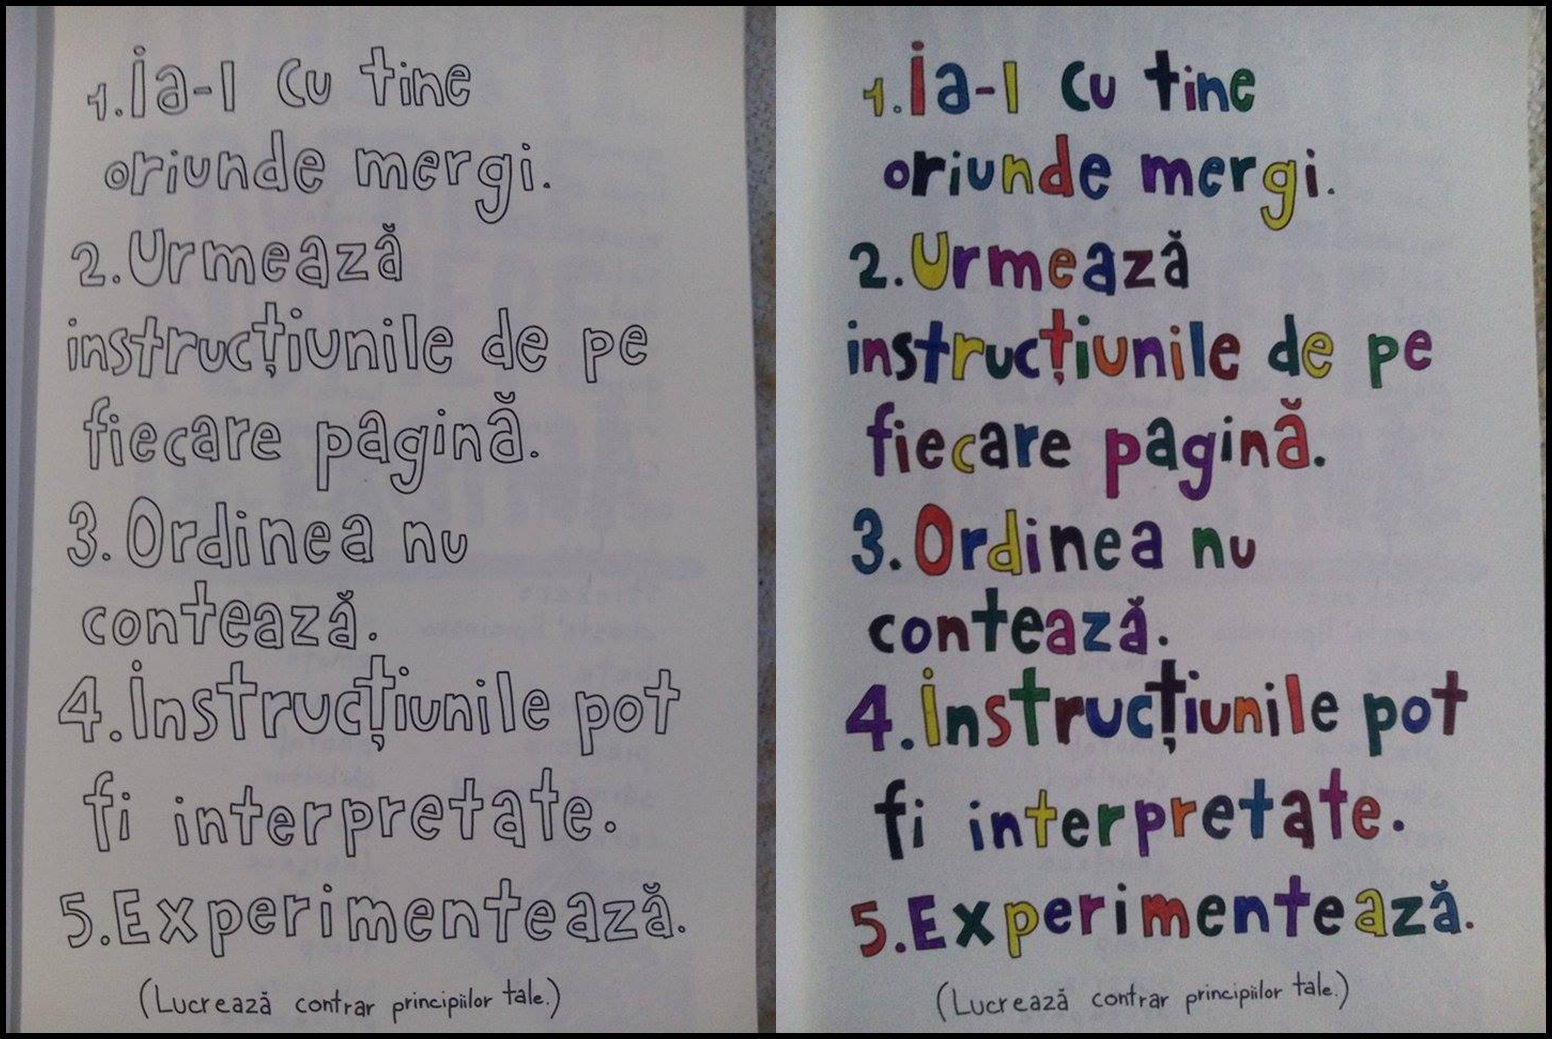 1. Ia-l cu tine
oriunde mergi.
2. Urmează
instrucțiunile de pe
fiecare pagină.
3. Ordinea nu
contează.
4. Instrucțiunile pot
fi interpretate.
5. Experimentează.
(Lucrează contrar principiilor tale.)
1. Ia-l cu tine
oriunde mergi.
2. Urmează
instrucțiunile de pe
fiecare pagină.
3. Ordinea nu
contează.
4. Instrucțiunile pot
fi interpretate.
5. Experimentează.
(Lucrează contrar principiilor tale.)